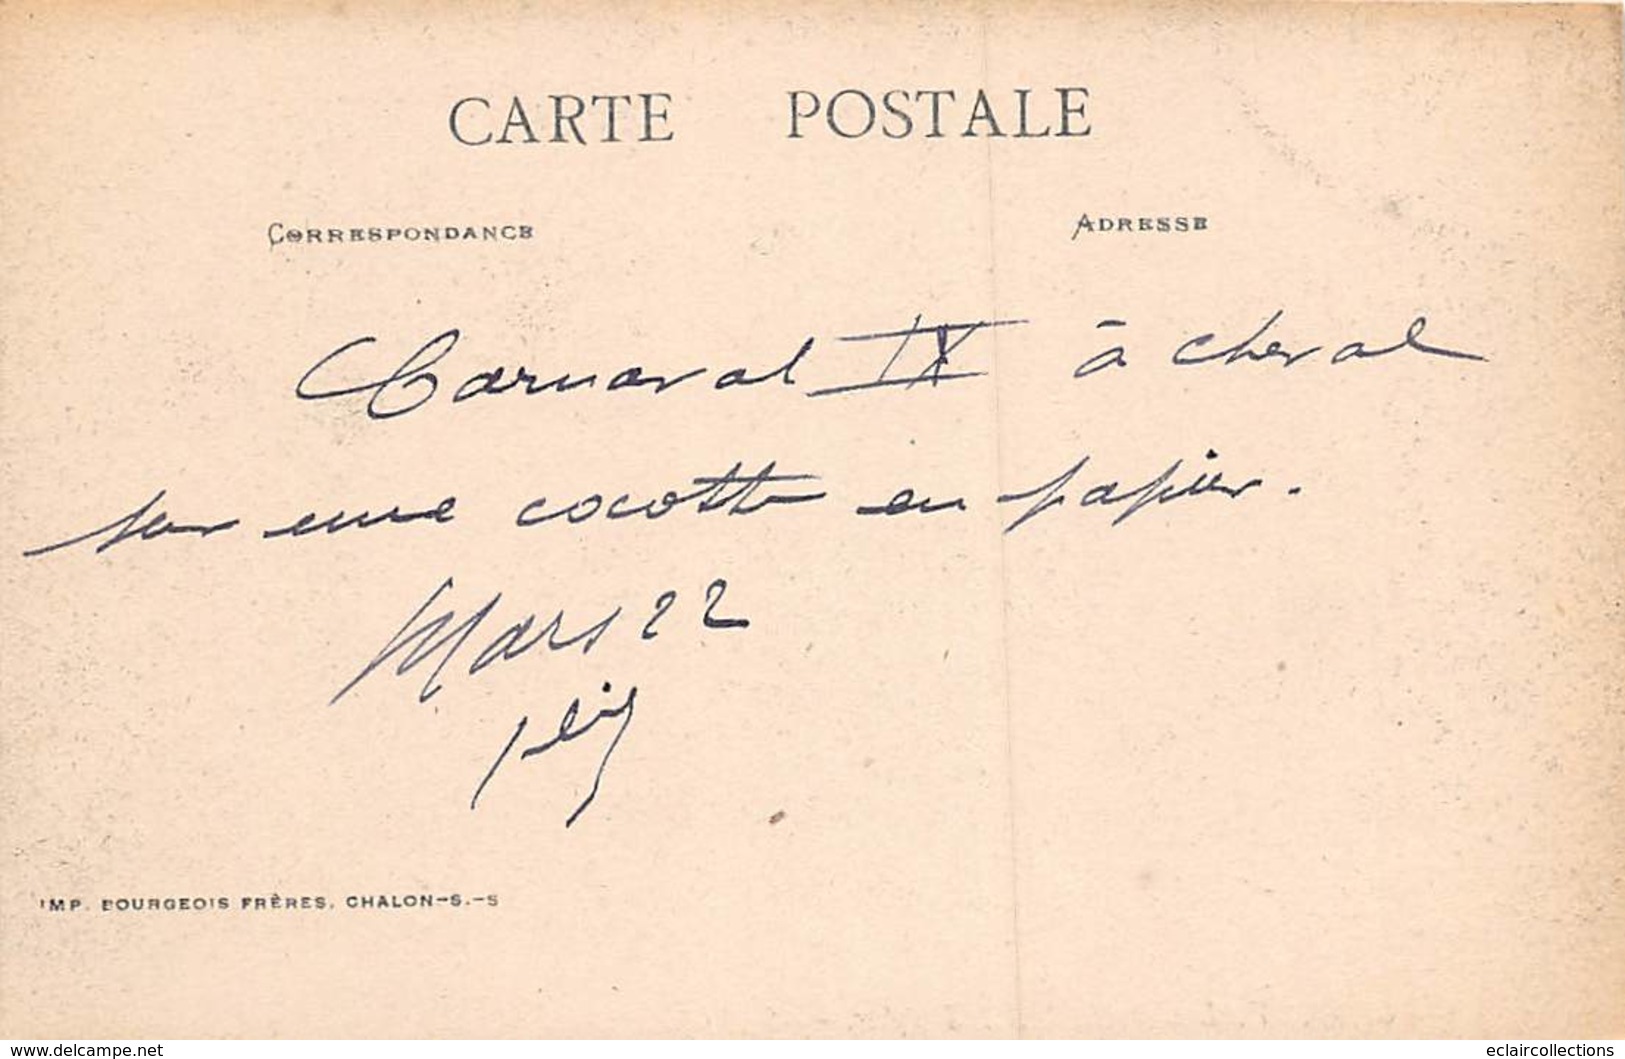 CARTE POSTALE
CORRESPONDANCE
ADRESSE
Carnaval IX à cheval
sur une cocotte en papier.
Mars 22
IMP. BOURGEOIS FRÈRES, CHALON-S.-S
www.delcampe.net
eclaircollections